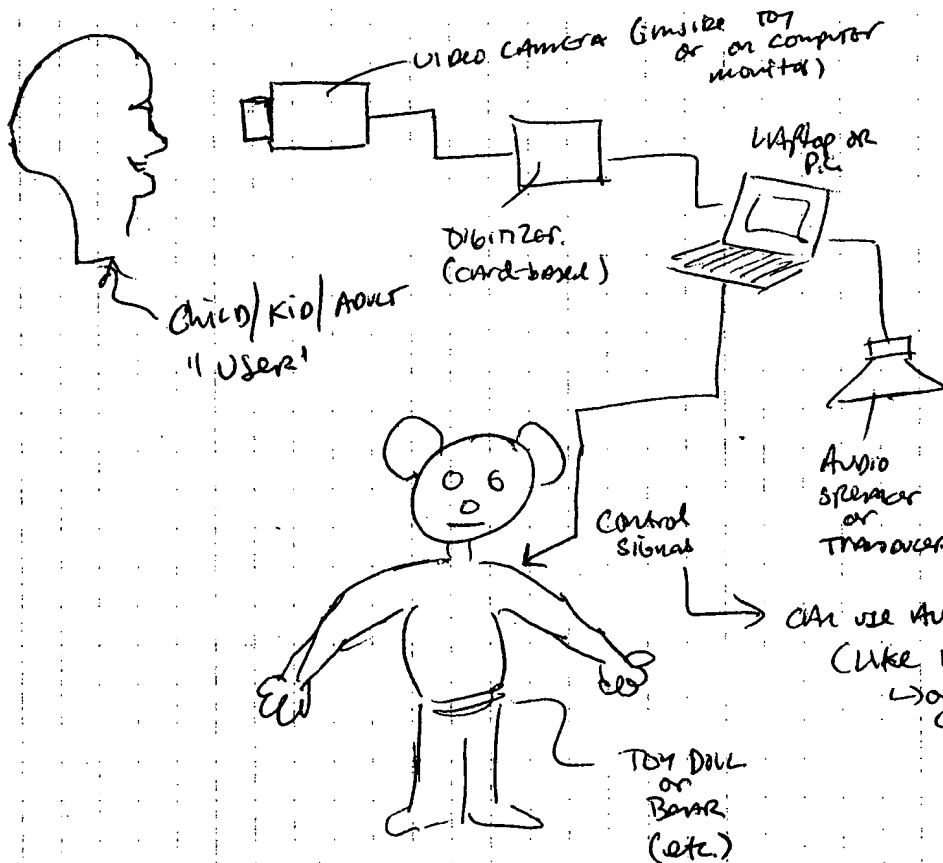 VIDEO CAMERA (inside TOY
or on computer
monitor)
LAPTOP OR
P.C.
DIGITIZER.
(card-based)
CHILD/KID/ADULT
"USER"
AUDIO
SPEAKER
or
TRANSDUCER
Control
Signals
CAN USE
(LIKE
TOY DOLL
or
BEAR
(etc.)